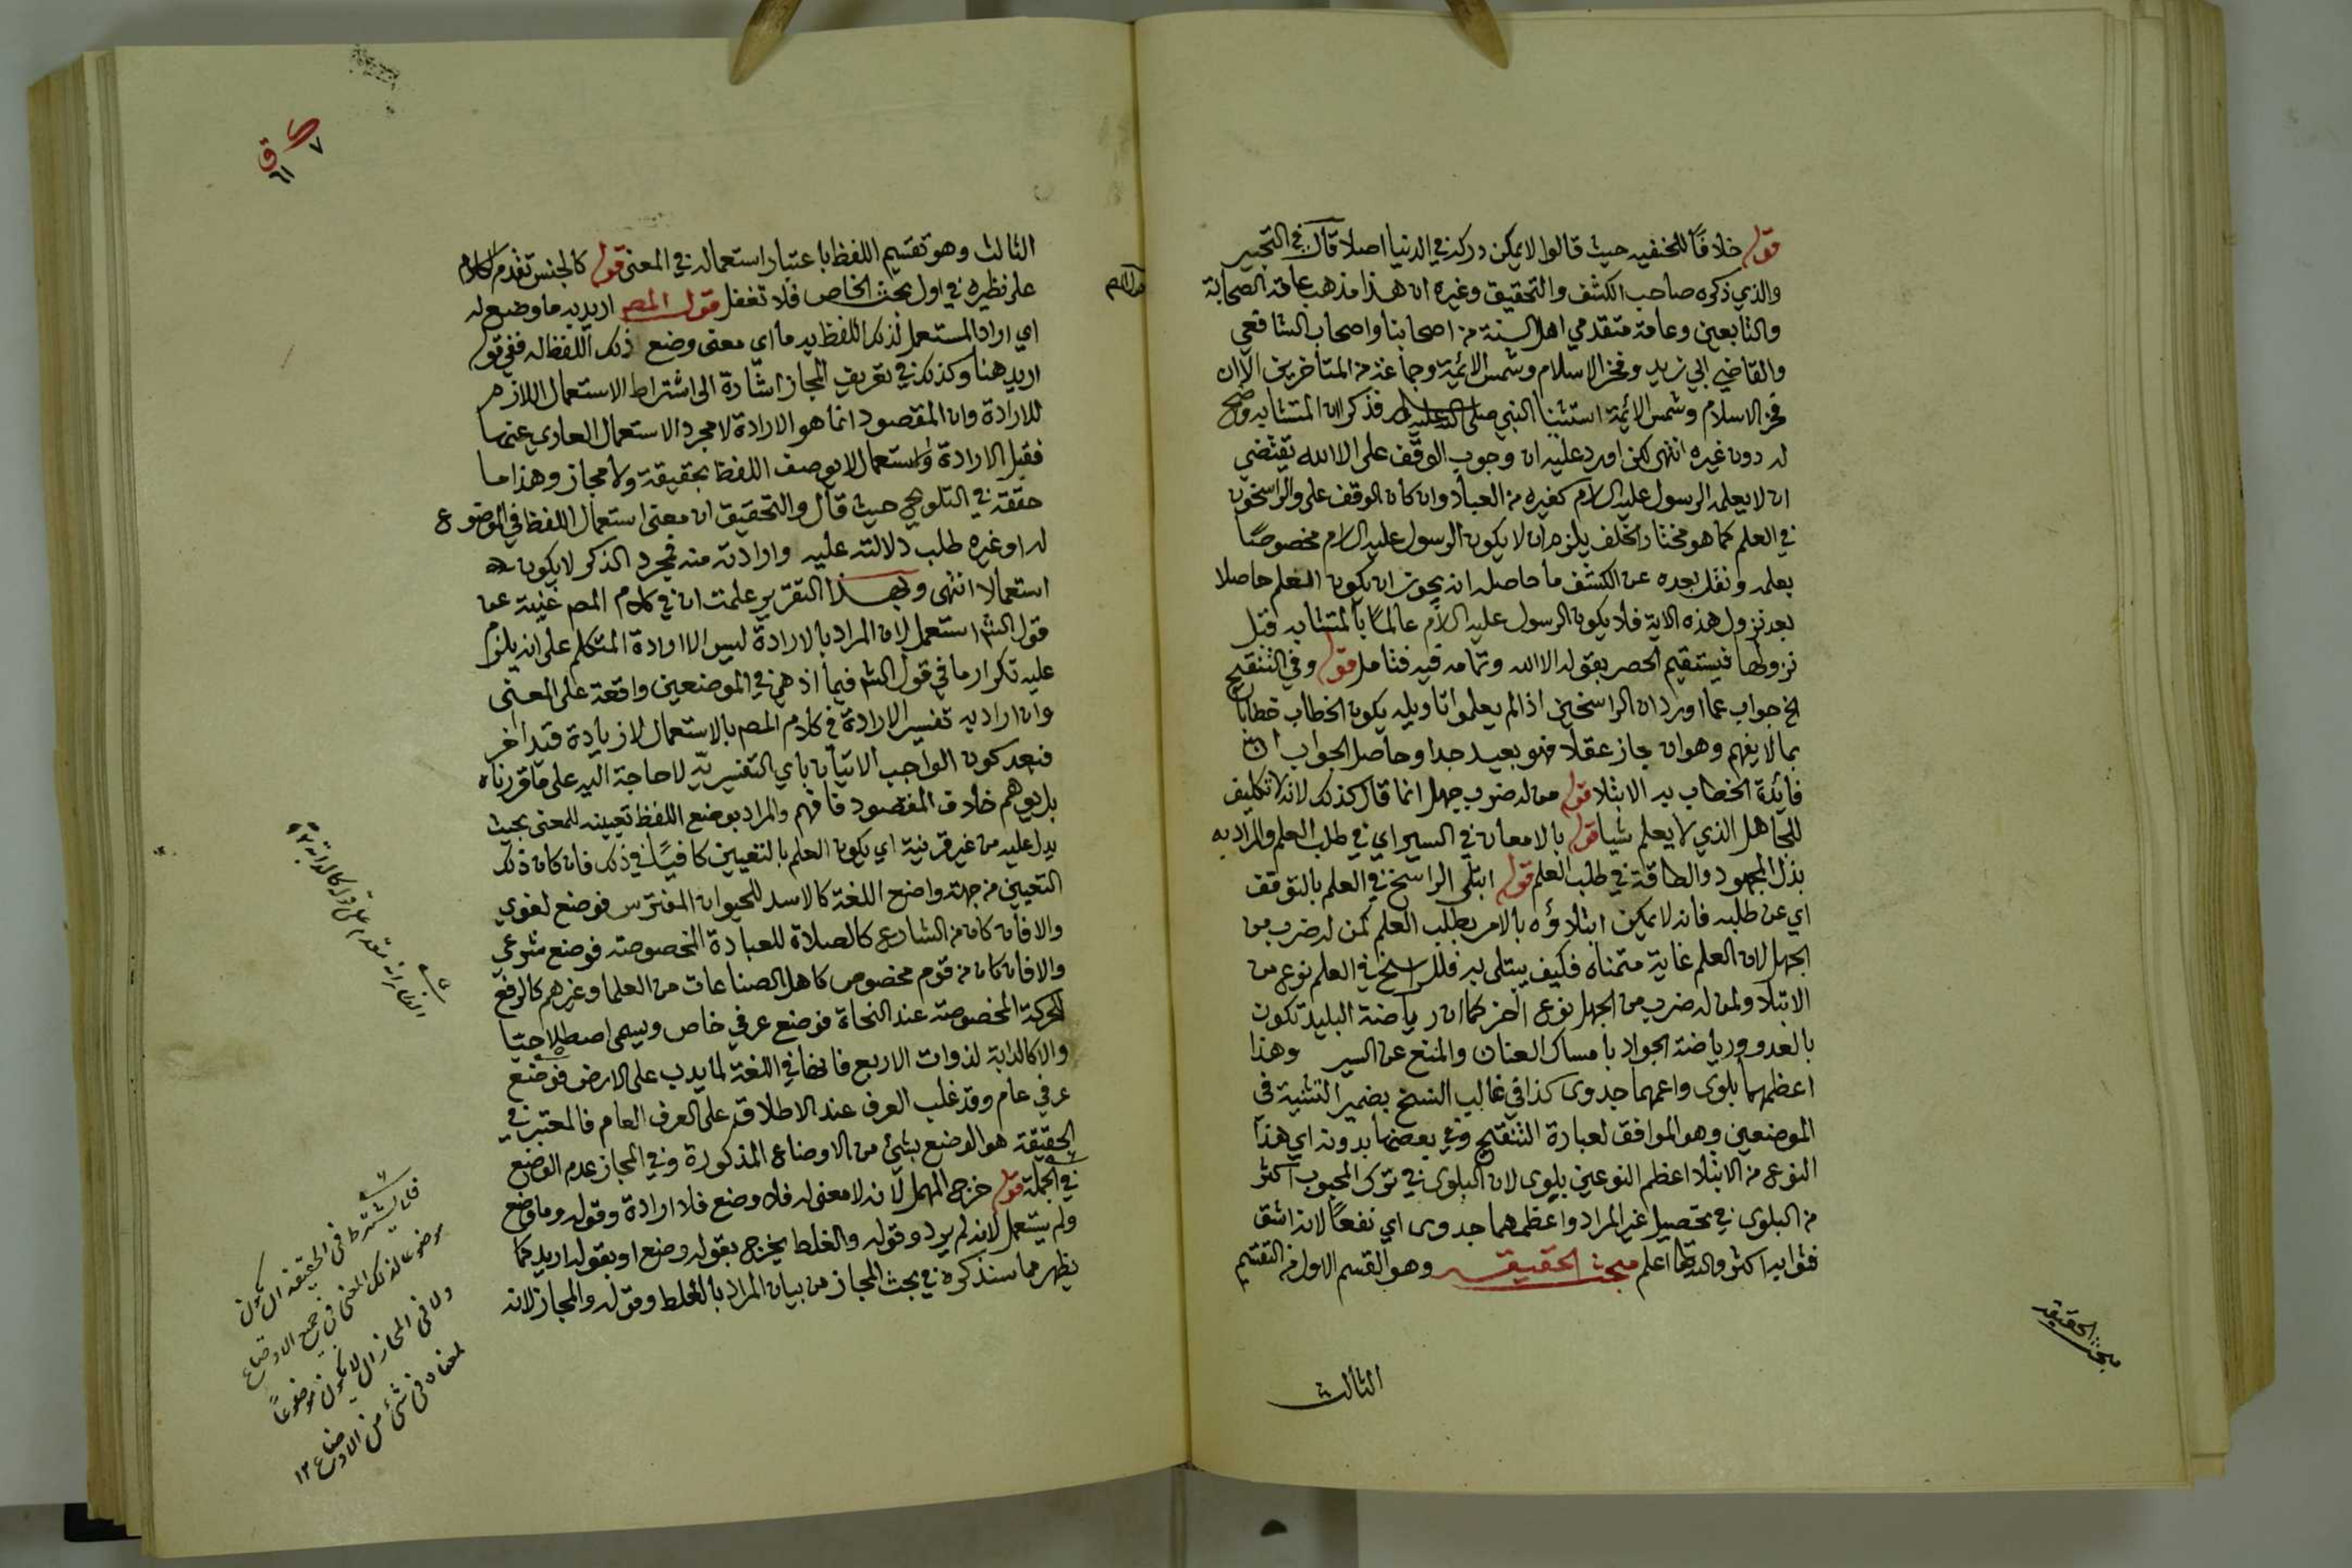 قوله خلافًا للحنفيه حيث قالوا لا يمكن دركه في الدنيا اصلا قال في التحبير
والذي ذكره صاحب الكشف والتحقيق وغيره ان هذا مذهب عامة الصحابة
والتابعين وعامة متقدمي اهل السنة من اصحابنا واصحاب الشافعي
والقاضي ابي زيد وفخر الاسلام وشمس الائمة وجماعة من المتأخرين الا ان
فخر الاسلام وشمس الائمة استثنيا النبي صلى الله عليه فذكرا ان المتشابه وضح
له دون غيره انتهى لكن اورد عليه ان وجوب الوقف على الا الله يقتضي
ان لا يعلمه الرسول عليه السلام كغيره من العباد وان كان الوقف على والراسخون
في العلم كما هو مختار الخلف يلزم ان لا يكون الرسول عليه السلام مخصوصًا
بعلمه ونقل بعده عن الكشف ما حاصله انه يجوز ان يكون العلم حاصلا
بعد نزول هذه الاية فلا يكون الرسول عليه السلام عالمًا بالمتشابه قبل
نزولها فيستقيم الحصر بقوله الا الله وتمامه فيه فتامل قوله وفي التنقيح
الخ جواب عما اورد ان الراسخين اذا لم يعلموا تاويله يكون الخطاب خطابا
بما لا يفهم وهو ان جاز عقلا فهو بعيد جدا وحاصل الجواب ان
فائدة الخطاب به الابتلا قوله من له ضرب جهل انما قال كذلك لانه لا تكليف
للجاهل الذي لا يعلم شيا قوله بالامعان في السير اي في طلب العلم والمراد به
بذل المجهود والطاقة في طلب العلم قوله ابتلى الراسخ في العلم بالتوقف
اي عن طلبه فانه لا يمكن ابتلاؤه بالامر بطلب العلم كمن له ضرب من
الجهل لان العلم غاية متمناه فكيف يبتلى به فللراسخ في العلم نوع من
الابتلا ولمن له ضرب من الجهل نوع اخر كما ان رياضة البليد تكون
بالعدو ورياضة الجواد بامساك العنان والمنع عن السير وهذا
اعظمهما بلوى واعمهما جدوى كذا في غالب النسخ بضمير التثنية في
الموضعين وهو الموافق لعبارة التنقيح وفي بعضها بدونه اي هذا
النوع من الابتلا اعظم النوعين بلوى لان البلوى في ترك المحبوب اكثر
من البلوى في تحصيل غير المراد واعظمهما جدوى اي نفعًا لانه اشق
فثوابه اكثر والله تعالى اعلم مبحث الحقيقة وهو القسم الاول من التقسيم
الثالث
مبحث الحقيقه
الثالث وهو تقسيم اللفظ باعتبار استعماله في المعنى قوله كالجنس تقدم الكلام
على نظيره في اول بحث الخاص فلا تغفل قول المصه اريد به ما وضع له
اي اراد المستعمل لذلك اللفظ به ما اي معنى وضع ذلك اللفظ له ففي قوله
اريد هنا وكذلك في تعريف المجاز اشارة الى اشتراط الاستعمال اللازم
للارادة وان المقصود انما هو الارادة لا مجرد الاستعمال العاري عنها
فقبل الارادة والاستعمال لا يوصف اللفظ بحقيقة ولا مجاز وهذا ما
حققه في التلويح حيث قال والتحقيق ان معنى استعمال اللفظ في الموضوع
له او غيره طلب دلالته عليه وارادته منه فمجرد الذكر لا يكون
استعمالا انتهى وبهذا التقرير علمت ان في كلام المصه غنية عن
قول الشه استعمل لان المراد بالارادة ليس الا ارادة المتكلم على انه يلزم
عليه تكرار ما في قول الشه فيما اذ هي في الموضعين واقعة على المعنى
وان اراد به تفسير الارادة في كلام المصه بالاستعمال لا زيادة قيد اخر
فبعد كون الواجب الاتيان باي التفسيرية لا حاجة اليه على ما قررناه
بل يوهم خلاف المقصود فافهم والمراد بوضع اللفظ تعيينه للمعنى بحيث
يدل عليه من غير قرينة اي يكون العلم بالتعيين كافيًا في ذلك فان كان ذلك
التعيين من جهة واضع اللغة كالاسد للحيوان المفترس فوضع لغوي
والا فان كان من الشارع كالصلاة للعبادة المخصوصة فوضع شرعي
والا فان كان من قوم مخصوص كاهل الصناعات من العلما وغيرهم كالرفع
للحركة المخصوصة عند النحاة فوضع عرفي خاص ويسمى اصطلاحيا
والا كالدابة لذوات الاربع فانها في اللغة لما يدب على الارض فوضع
عرفي عام وقد غلب العرف عند الاطلاق على العرف العام فالمعتبر في
الحقيقة هو الوضع بشيء من الاوضاع المذكورة وفي المجاز عدم الوضع
في الجملة قوله خرج المهمل لانه لا معنى له فلا وضع فلا ارادة وقوله وما وضع
ولم يستعمل لانه لم يرد وقوله والغلط يخرج بقوله وضع او بقوله اريد كما
يظهر مما سنذكره في بحث المجاز من بيان المراد بالغلط وقوله والمجاز لانه
فلا يشترط في الحقيقة ان تكون
موضوعا لذلك المعنى في جميع الاوضاع
ولا في المجاز ان لا يكون موضوعاً
لمعناه في شيء من الاوضاع ١٢